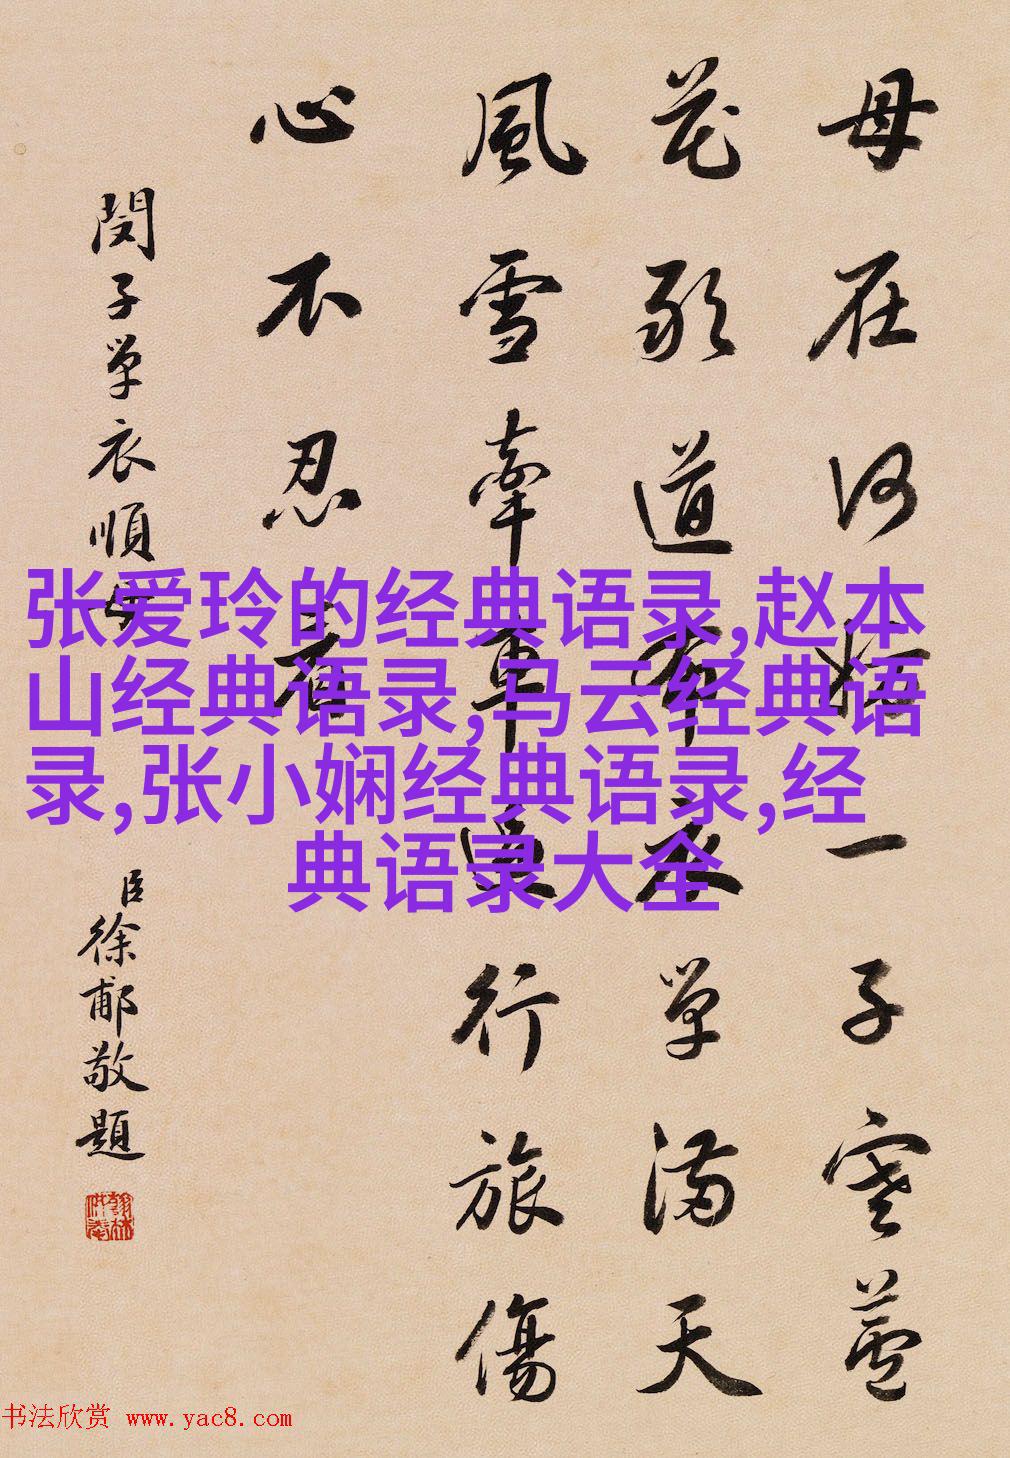 母在何妨一子寒蘆
花敢道有衣單滿天
風雪牽車行旅傷
心不忍看
閔子單衣順母
臣徐郙敬題
张爱玲的经典语录,赵本
山经典语录,马云经典语
录,张小娴经典语录,经
典语录大全
书法欣赏 www.yac8.com